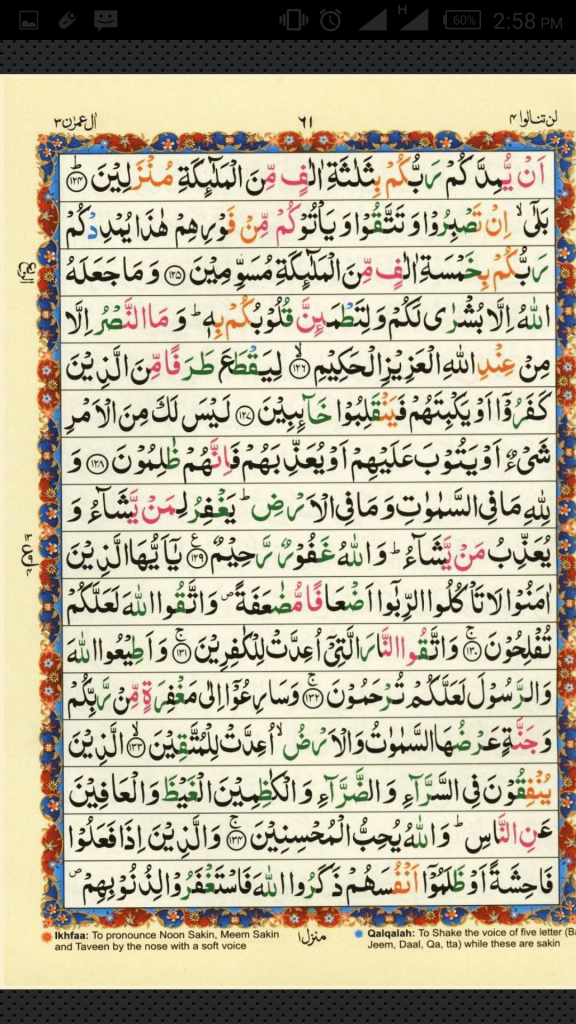 60% 2:58 PM
H
لن تنالوا ٤
٦١
اٰل عمرٰن ٣
اَنْ يُّمِدَّكُمْ رَبُّكُمْ بِثَلٰثَةِ اٰلٰفٍ مِّنَ الْمَلٰٓئِكَةِ مُنْزَلِيْنَ ﴿١٢٤﴾
بَلٰٓى ۙ اِنْ تَصْبِرُوْا وَ تَتَّقُوْا وَ يَاْتُوْكُمْ مِّنْ فَوْرِهِمْ هٰذَا يُمْدِدْكُمْ
رَبُّكُمْ بِخَمْسَةِ اٰلٰفٍ مِّنَ الْمَلٰٓئِكَةِ مُسَوِّمِيْنَ ﴿١٢٥﴾ وَ مَا جَعَلَهُ
اللّٰهُ اِلَّا بُشْرٰى لَكُمْ وَ لِتَطْمَئِنَّ قُلُوْبُكُمْ بِهٖ ؕ وَ مَا النَّصْرُ اِلَّا
مِنْ عِنْدِ اللّٰهِ الْعَزِيْزِ الْحَكِيْمِ ﴿١٢٦﴾ۙ لِيَقْطَعَ طَرَفًا مِّنَ الَّذِيْنَ
كَفَرُوْۤا اَوْ يَكْبِتَهُمْ فَيَنْقَلِبُوْا خَآئِبِيْنَ ﴿١٢٧﴾ لَيْسَ لَكَ مِنَ الْاَمْرِ
شَيْءٌ اَوْ يَتُوْبَ عَلَيْهِمْ اَوْ يُعَذِّبَهُمْ فَاِنَّهُمْ ظٰلِمُوْنَ ﴿١٢٨﴾ وَ
لِلّٰهِ مَا فِي السَّمٰوٰتِ وَ مَا فِي الْاَرْضِ ؕ يَغْفِرُ لِمَنْ يَّشَآءُ وَ
يُعَذِّبُ مَنْ يَّشَآءُ ؕ وَ اللّٰهُ غَفُوْرٌ رَّحِيْمٌ ﴿١٢٩﴾ يٰۤاَيُّهَا الَّذِيْنَ
اٰمَنُوْا لَا تَاْكُلُوا الرِّبٰۤوا اَضْعَافًا مُّضٰعَفَةً ۪ وَّ اتَّقُوا اللّٰهَ لَعَلَّكُمْ
تُفْلِحُوْنَ ﴿١٣٠﴾ۚ وَ اتَّقُوا النَّارَ الَّتِيْۤ اُعِدَّتْ لِلْكٰفِرِيْنَ ﴿١٣١﴾ۚ وَ اَطِيْعُوا اللّٰهَ
وَ الرَّسُوْلَ لَعَلَّكُمْ تُرْحَمُوْنَ ﴿١٣٢﴾ۚ وَ سَارِعُوْۤا اِلٰى مَغْفِرَةٍ مِّنْ رَّبِّكُمْ
وَ جَنَّةٍ عَرْضُهَا السَّمٰوٰتُ وَ الْاَرْضُ ۙ اُعِدَّتْ لِلْمُتَّقِيْنَ ﴿١٣٣﴾ۙ الَّذِيْنَ
يُنْفِقُوْنَ فِي السَّرَّآءِ وَ الضَّرَّآءِ وَ الْكٰظِمِيْنَ الْغَيْظَ وَ الْعَافِيْنَ
عَنِ النَّاسِ ؕ وَ اللّٰهُ يُحِبُّ الْمُحْسِنِيْنَ ﴿١٣٤﴾ۚ وَ الَّذِيْنَ اِذَا فَعَلُوْا
فَاحِشَةً اَوْ ظَلَمُوْۤا اَنْفُسَهُمْ ذَكَرُوا اللّٰهَ فَاسْتَغْفَرُوْا لِذُنُوْبِهِمْ ۪
Ikhfaa: To pronounce Noon Sakin, Meem Sakin
and Taveen by the nose with a soft voice
منزل ١
Qalqalah: To Shake the voice of five letter (Ba
Jeem, Daal, Qa, tta) while these are sakin